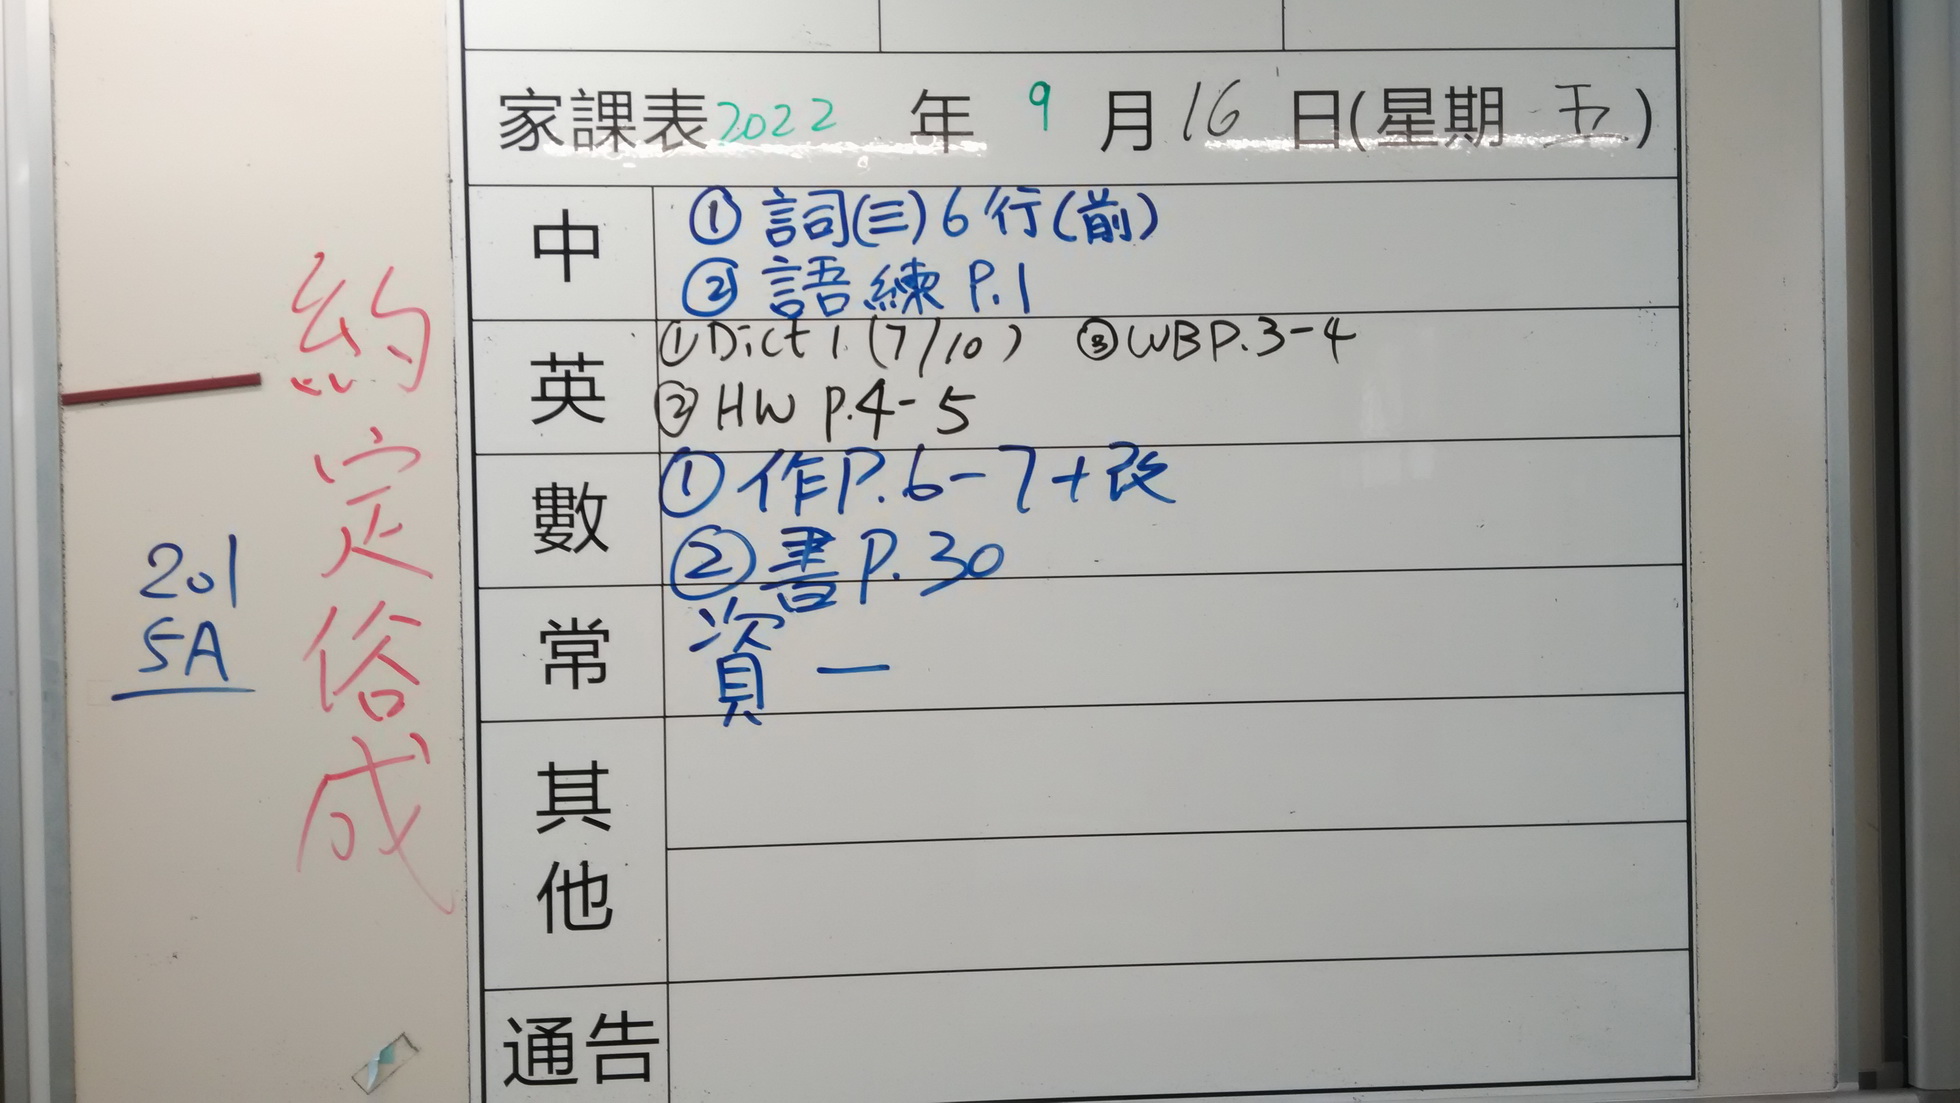 家課表2022 年 9 月 16 日(星期 五)
中
① 詞(三) 6 行(前)
② 語練 P.1
英
① Dict 1 (7/10) ③ WB P.3-4
② HW P.4-5
數
① 作P.6-7+改
② 書 P.30
常
資 一
其他
通告
約定俗成
201
5A